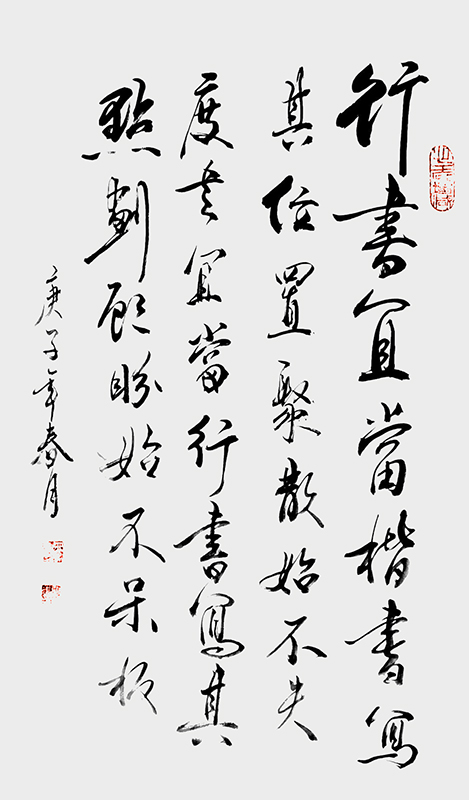 行書宜當楷書寫
其位置聚散始不失
度宜當行書寫其
點劃顧盼始不呆板
庚子年春月